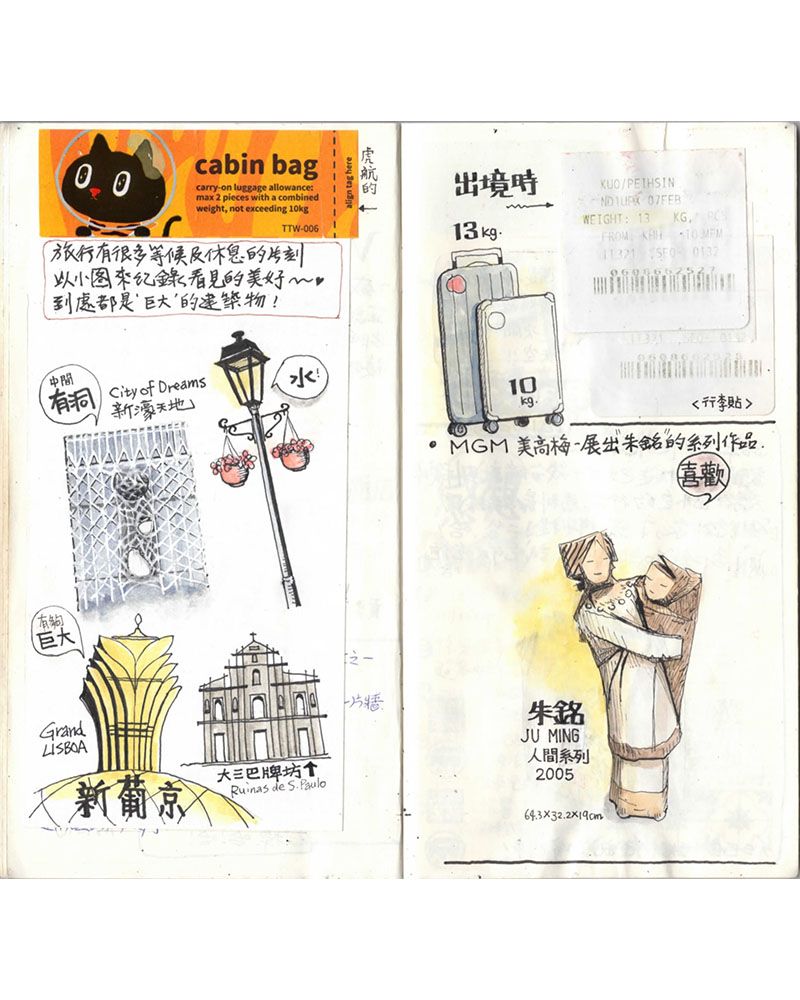 cabin bag
carry-on luggage allowance:
max 2 pieces with a combined
weight, not exceeding 10kg
TTW-006
align tag here
虎航的
旅行有很多等候及休息的片刻
以小图來紀錄看見的美好～♥
到處都是“巨大”的建築物！
中間
有洞
City of Dreams
新濠天地
水!
有夠
巨大
Grand
LISBOA
新葡京
大三巴牌坊↑
Ruinas de S. Paulo
之一
片牆
出境時
13kg.
10
kg.
KUO/PEIHSIN
07FEB
WEIGHT: 13 KG,
FROM KHH
11321 SEQ 0132
0606662527
11321 SEQ 0132
<行李貼>
• MGM 美高梅-展出“朱銘”的系列作品.
喜歡
朱銘
JU MING
人間系列
2005
64.3×32.2×19cm